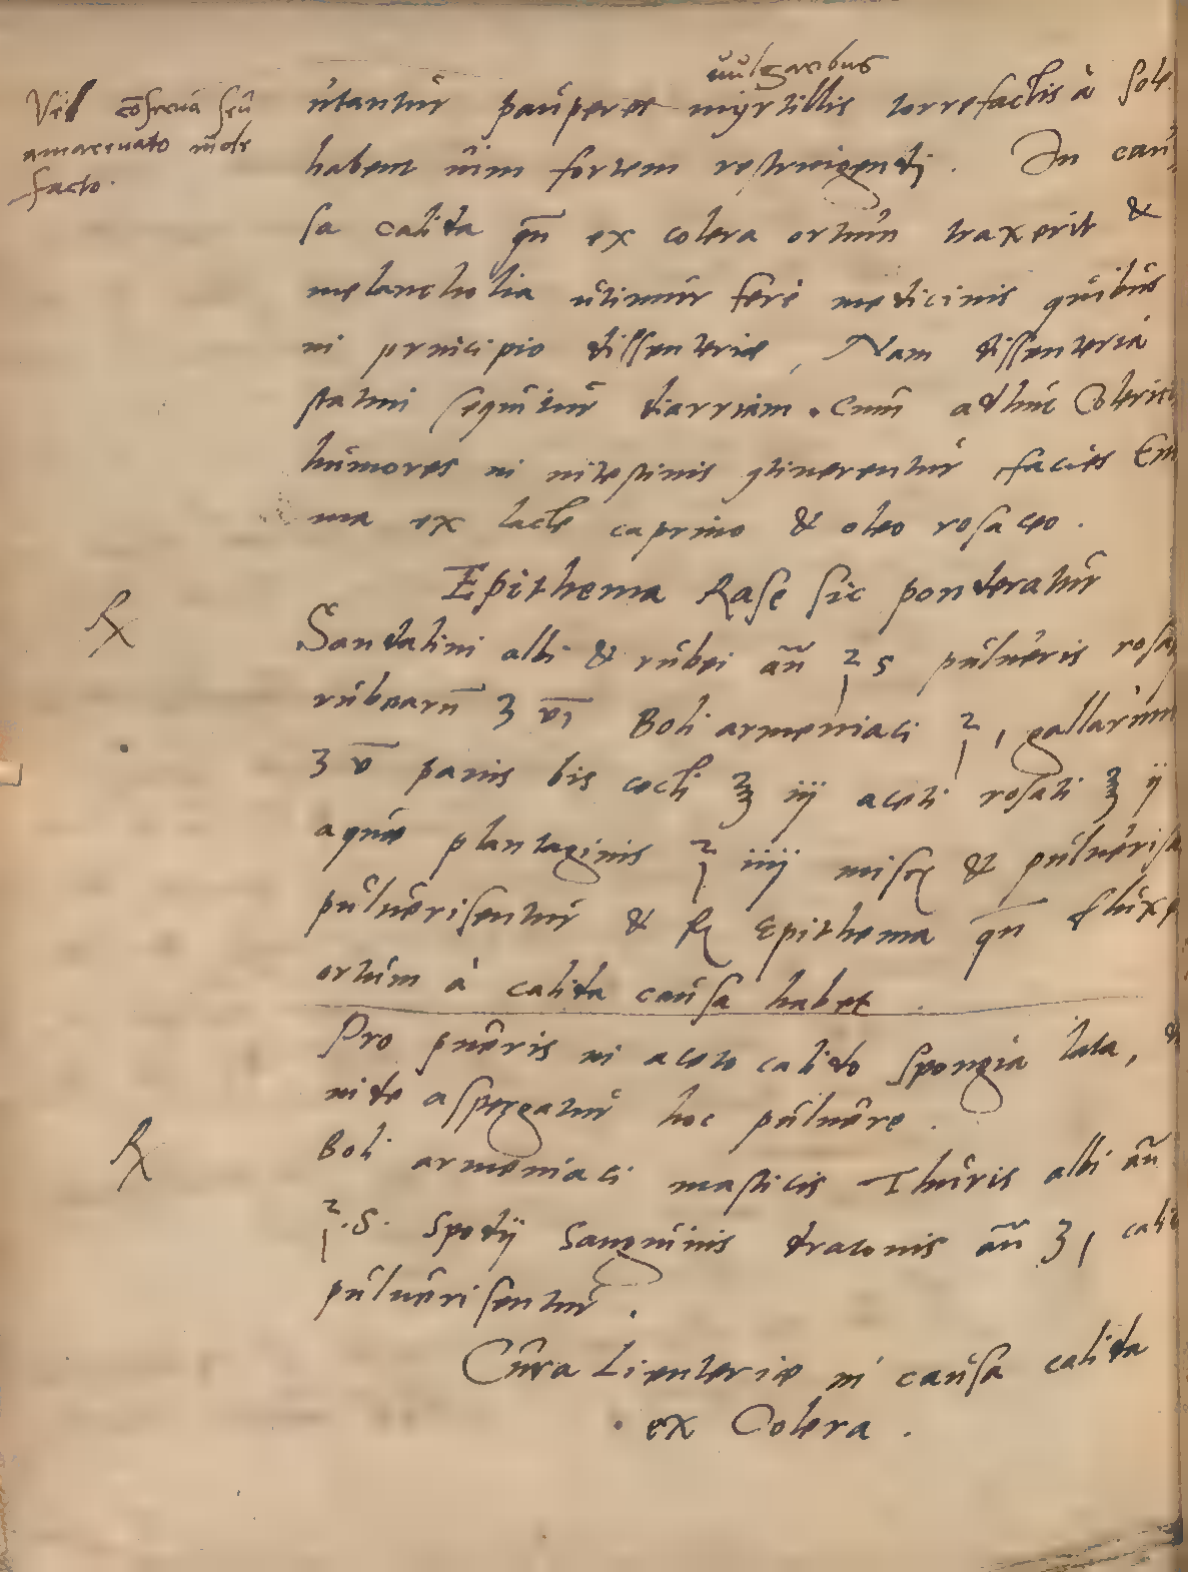 uulgaribus
Vel cōserua seu
amarenato inde
facto.
utantur pauperes myrtillis torrefactis à sole
habent uim fortem restringendi. In cau
sa calida qn̄ ex colera ortum traxerit &
melancholia utimur fere medicinis quibus
in principio dissenteriæ, Nam dissenteria
statim sequitur diarriam. Cum adhuc Colerici
humores in intestinis 9tinerentur, facies En
ma ex lacte caprino & oleo rosaceo.
Epithema Rase sic ponderatur
℞
Sandalini albi & rubei añ ℥ s pulueris rosar
rubearū ʒ vi Boli armeniaci ℥ 1, gallarum
ʒ v panis bis cocti ℥ iij aceti rosati ℥ ij
aquæ plantaginis ℥ iiij misce & pulueris
puluerisentur & fiat Epithema qn̄ fluxus
ortum à calida causa habet.
Pro pueris in aceto calido spongia lata, &
inde aspergatur hoc puluere.
℞
Boli armeniaci masticis Thuris albi añ
℥.s. spodij sanguinis draconis añ ʒ 1,
puluerisentur.
Cura Lienteriæ in causa calida
ex Colera.